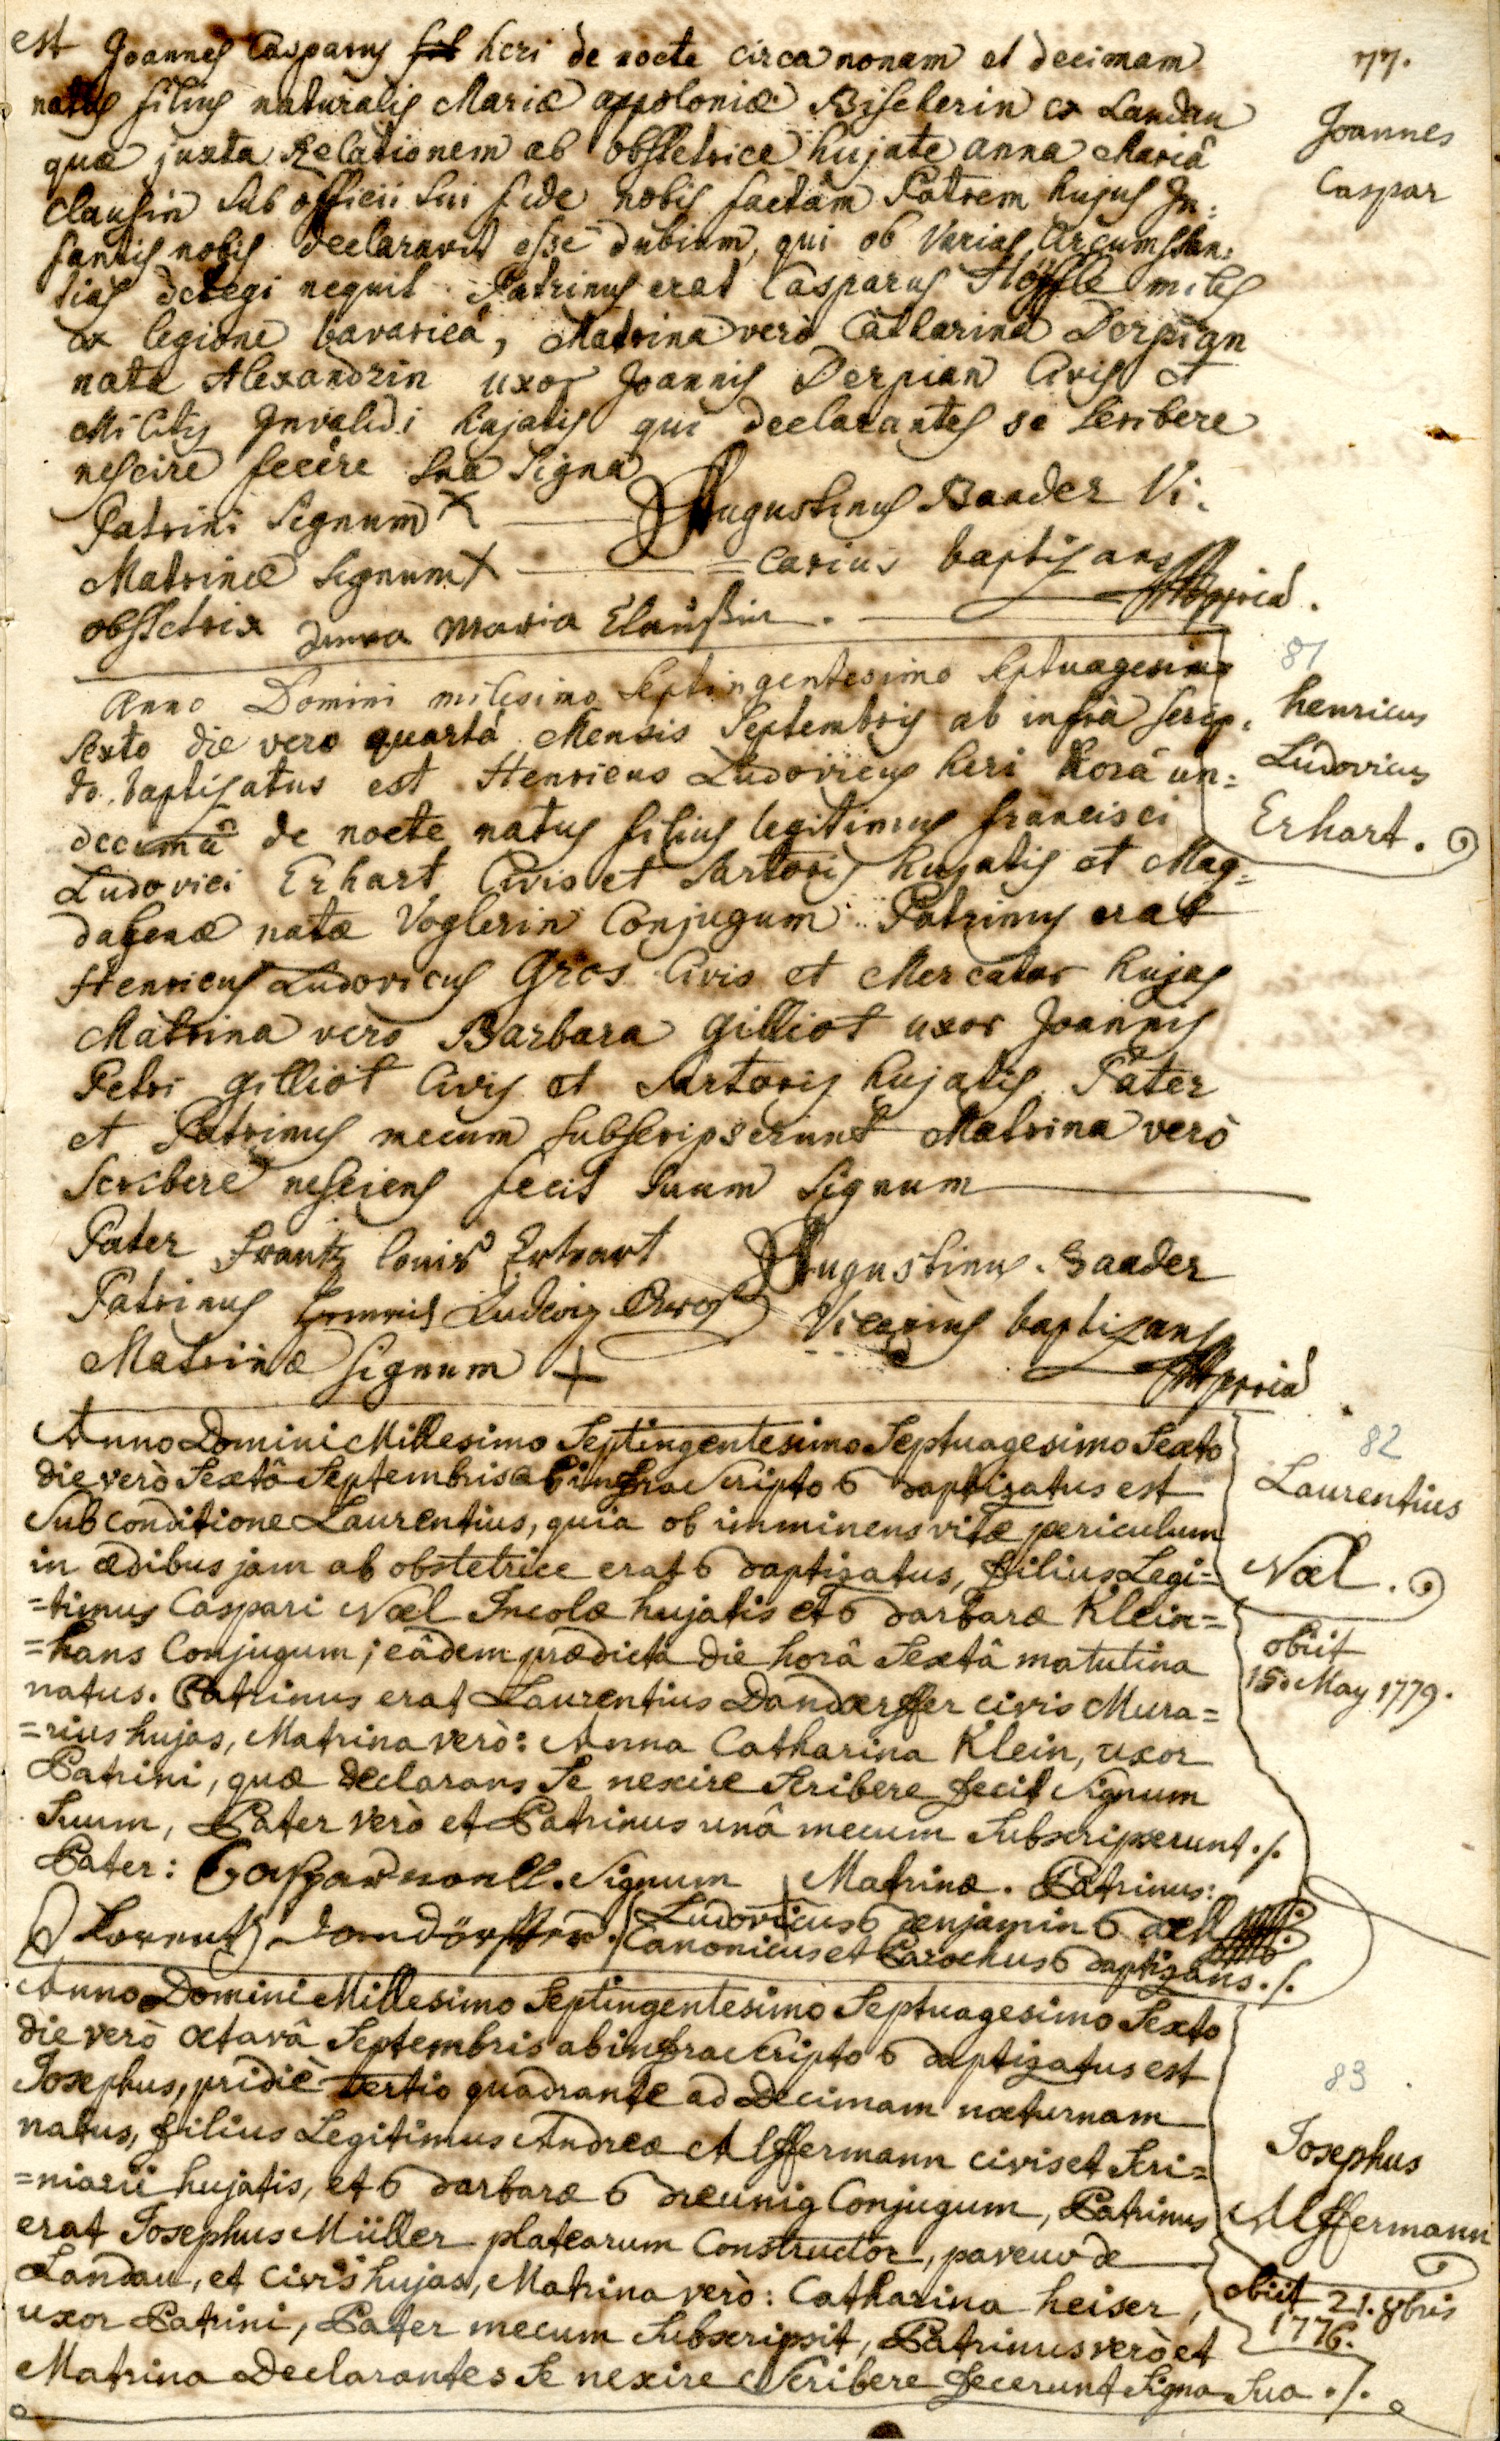 est Joannes Casparus heri de nocte circa nonam et decimam
natus filius naturalis Mariæ appoloniæ Bischerin ex Landau
quæ juxta Relationem ab obstetrice hujate anna Mariâ
Clausin sub officii sui fide nobis factam Patrem hujus In:
fantis nobis declaravit esse dubium, qui ob varias Circumstan:
tias detegi nequit. Patrinus erat Casparus Höffle miles
ex legione bavaricâ, Matrina verò Catharina Derpian
nata Alexandrin uxor Joannis Derpian Civis et
Militis Invalidi hujatis qui declarantes se scribere
nescire fecêre sua Signa
Patrini Signum X Augustinus Baader Vi:
Matrinæ Signum X =carius baptizans
obstetrix Anna Maria Claußin. mppriâ.
77.
Joannes
Caspar
Anno Domini milesimo Septingentesimo Septuagesimo
Sexto die vero quartâ Mensis Septembris ab infrà scrip:
to baptizatus est Henricus Ludovicus heri horâ un=
decimâ de nocte natus filius legitimus francisci
Ludovici Erhart Civis et Sartoris hujatis et Mag=
dalenæ natæ Voglerin Conjugum. Patrinus erat
Henricus Ludovicus Gros Civis et Mercator hujas
Matrina verò Barbara Gilliot uxor Joannis
Petri Gilliot Civis et Sartoris hujatis. Pater
et Patrinus mecum subscripserunt Matrina verò
Scribere nesciens fecit suum Signum
Pater Frantz louis Erhart Augustinus Baader
Patrinus Ludwig Vicarius baptizans
Matrinæ Signum + mppriâ
81
henricus
Ludovicus
Erhart.
Anno Domini Millesimo Septingentesimo Septuagesimo Sexto
die verò Sextâ Septembris ab infra Scripto Baptizatus est
Sub conditione Laurentius, quia ob imminens vitæ periculum
in ædibus jam ab obstetrice erat Baptizatus, filius Legi=
=timus Caspari Noel Incolæ hujatis et Barbaræ Klein=
=hans Conjugum; eâdem prædictâ die horâ Sextâ matutina
natus. Patrinus erat Laurentius Dandoerffer civis Mura=
=rius hujas, Matrina verò: Anna Catharina Klein, uxor
Patrini, quæ declarans Se nescire Scribere fecit Signum
Suum, Pater verò et Patrinus unâ mecum Subscripserunt ./.
Pater: Caspar noell. Signum + Matrinæ. Patrinus:
Lorentz Ludovicus Benjamin Boell
Canonicus et Parochus Baptizans ./.
82
Laurentius
Noel.
obiit
15 May 1779.
Anno Domini Millesimo Septingentesimo Septuagesimo Sexto
die verò octavâ Septembris ab infra Scripto Baptizatus est
Josephus, pridiè tertio quadrante ad Decimam nocturnam
natus, filius Legitimus Andreæ Alffermann civis et Scri=
=niarii hujatis, et Barbaræ Breunig Conjugum, Patrinus
erat Josephus Müller platearum Constructor, paveur de
Landau, et civis hujas, Matrina verò: Catharina heiser,
uxor Patrini, Pater mecum Subscripsit, Patrinus verò et
Matrina Declarantes Se nescire Scribere fecerunt Signa Sua ./.
83
Josephus
Alffermann
obiit 21. 8bris
1776.